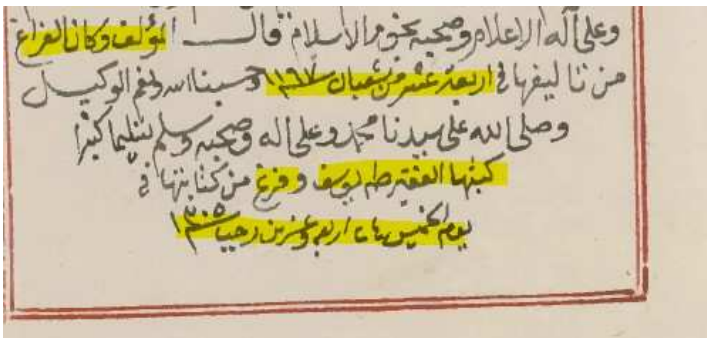 وعلى آله الاعلام وصحبه نجوم الاسلام قال المؤلف وكان الفراغ
من تاليفها في اربعة عشر من شعبان وحسبنا الله ونعم الوكيل
وصلى الله على سيدنا محمد وعلى اله وصحبه وسلم تسليما كثيرا
كتبها الفقير طه يوسف وفرغ من كتابتها في
يوم الخميس اربعة وعشرين رجب ١٣٠٥